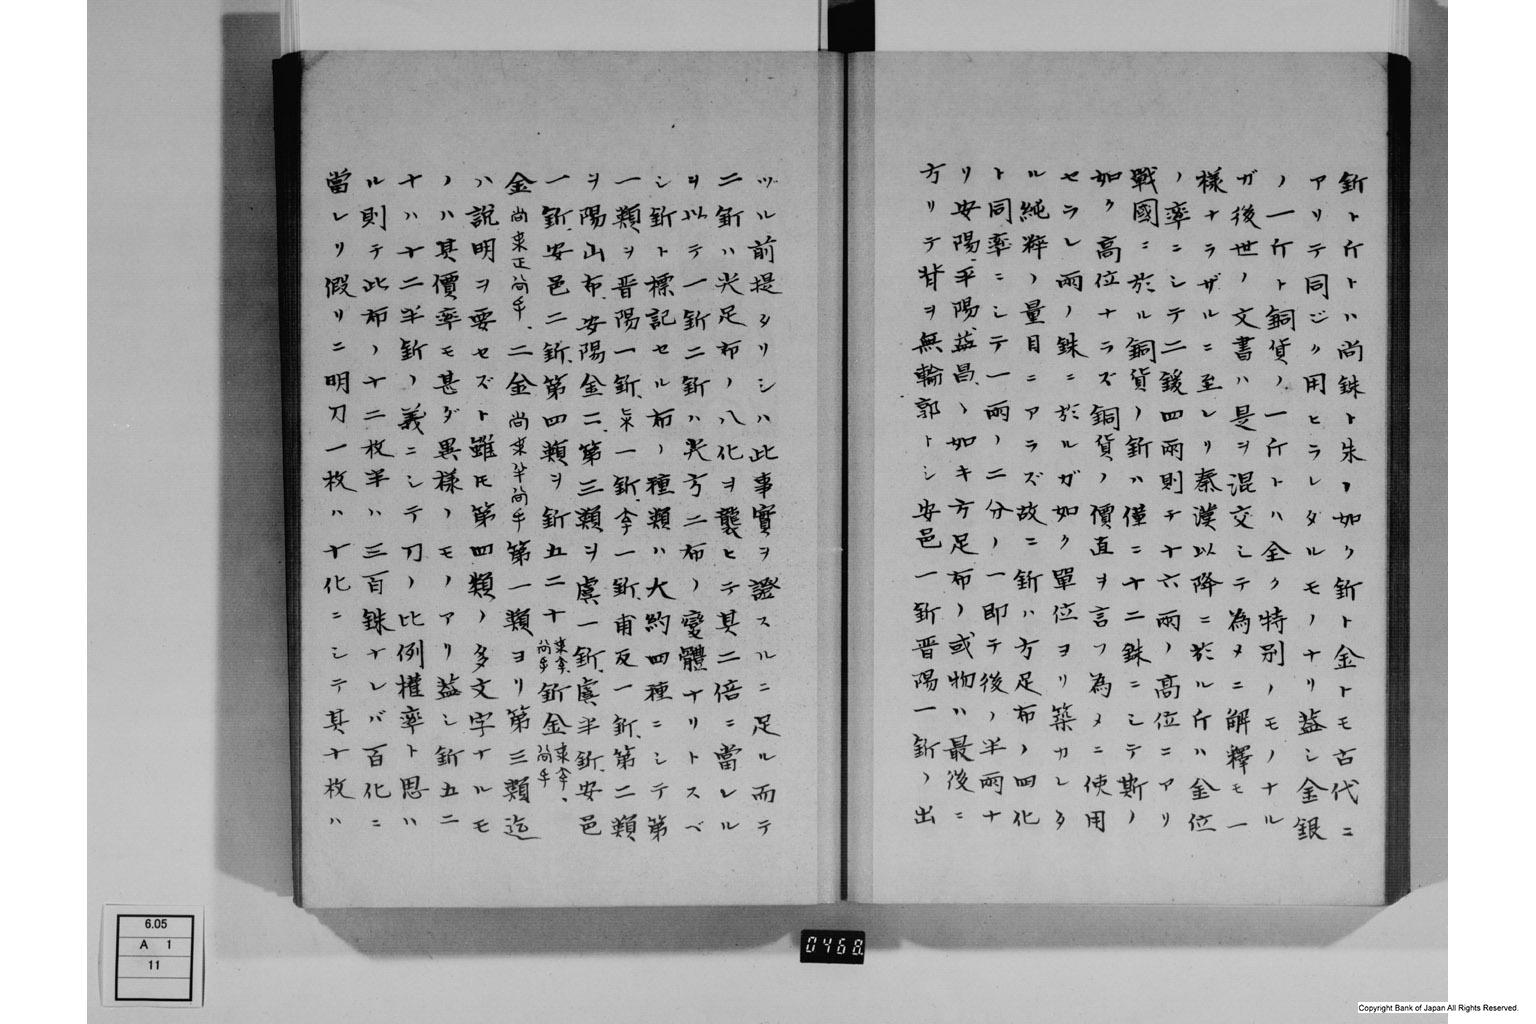 釿ト斤トハ尚銖ト朱ノ如ク釿ト金トモ古代ニ
アリテ同ジク用ヒラレタルモノナリ蓋シ金銀
ノ一斤ト銅貨ノ一斤トハ全ク特別ノモノナル
ガ後世ノ文書ハ是ヲ混交シテ為メニ解釋モ一
様ナラザルニ至レリ秦漢以降ニ於ル斤ハ金位
ノ率ニシテ二鍰四兩則チ十六兩ノ高位ニアリ
戰國ニ於ル銅貨ノ釿ハ僅ニ十二銖ニシテ斯ノ
如ク高位ナラズ銅貨ノ價直ヲ言フ為メニ使用
セラレ兩ノ銖ニ於ルガ如ク單位ヨリ築カレタ
ル純粹ノ量目ニアラズ故ニ釿ハ方足布ノ四化
ト同率ニシテ一兩ノ二分ノ一即チ後ノ半兩ナ
リ安陽、平陽、益昌、ノ如キ方足布ノ或物ハ最後ニ
方リテ背ヲ無輪郭トシ安邑一釿晋陽一釿ノ出
ヅル前提タリシハ此事實ヲ證スルニ足ル而テ
二釿ハ尖足布ノ八化ヲ襲ヒテ其二倍ニ當レル
ヲ以テ一釿二釿ハ尖方二布ノ變體ナリトスベ
シ釿ト標記セル布ノ種類ハ大約四種ニシテ第
一類ヲ晋陽一釿、 一釿、 一釿、甫反一釿、第二類
ヲ陽山布、安陽金二、第三類ヲ虞一釿、虞半釿、安邑
一釿、安邑二釿、第四類ヲ釿五二十 釿金
金 二金 第一類ヨリ第三類迄
ハ説明ヲ要セズト雖モ第四類ノ多文字ナルモ
ノハ其價率モ甚ダ異様ノモノアリ蓋シ釿五二
十ハ十二半釿ノ義ニシテ刀ノ比例權率ト思ハ
ル則テ此布ノ十二枚半ハ三百銖ナレバ百化ニ
當レリ假リニ明刀一枚ハ十化ニシテ其十枚ハ
0468
6.05
A 1
11
Copyright Bank of Japan All Rights Reserved.